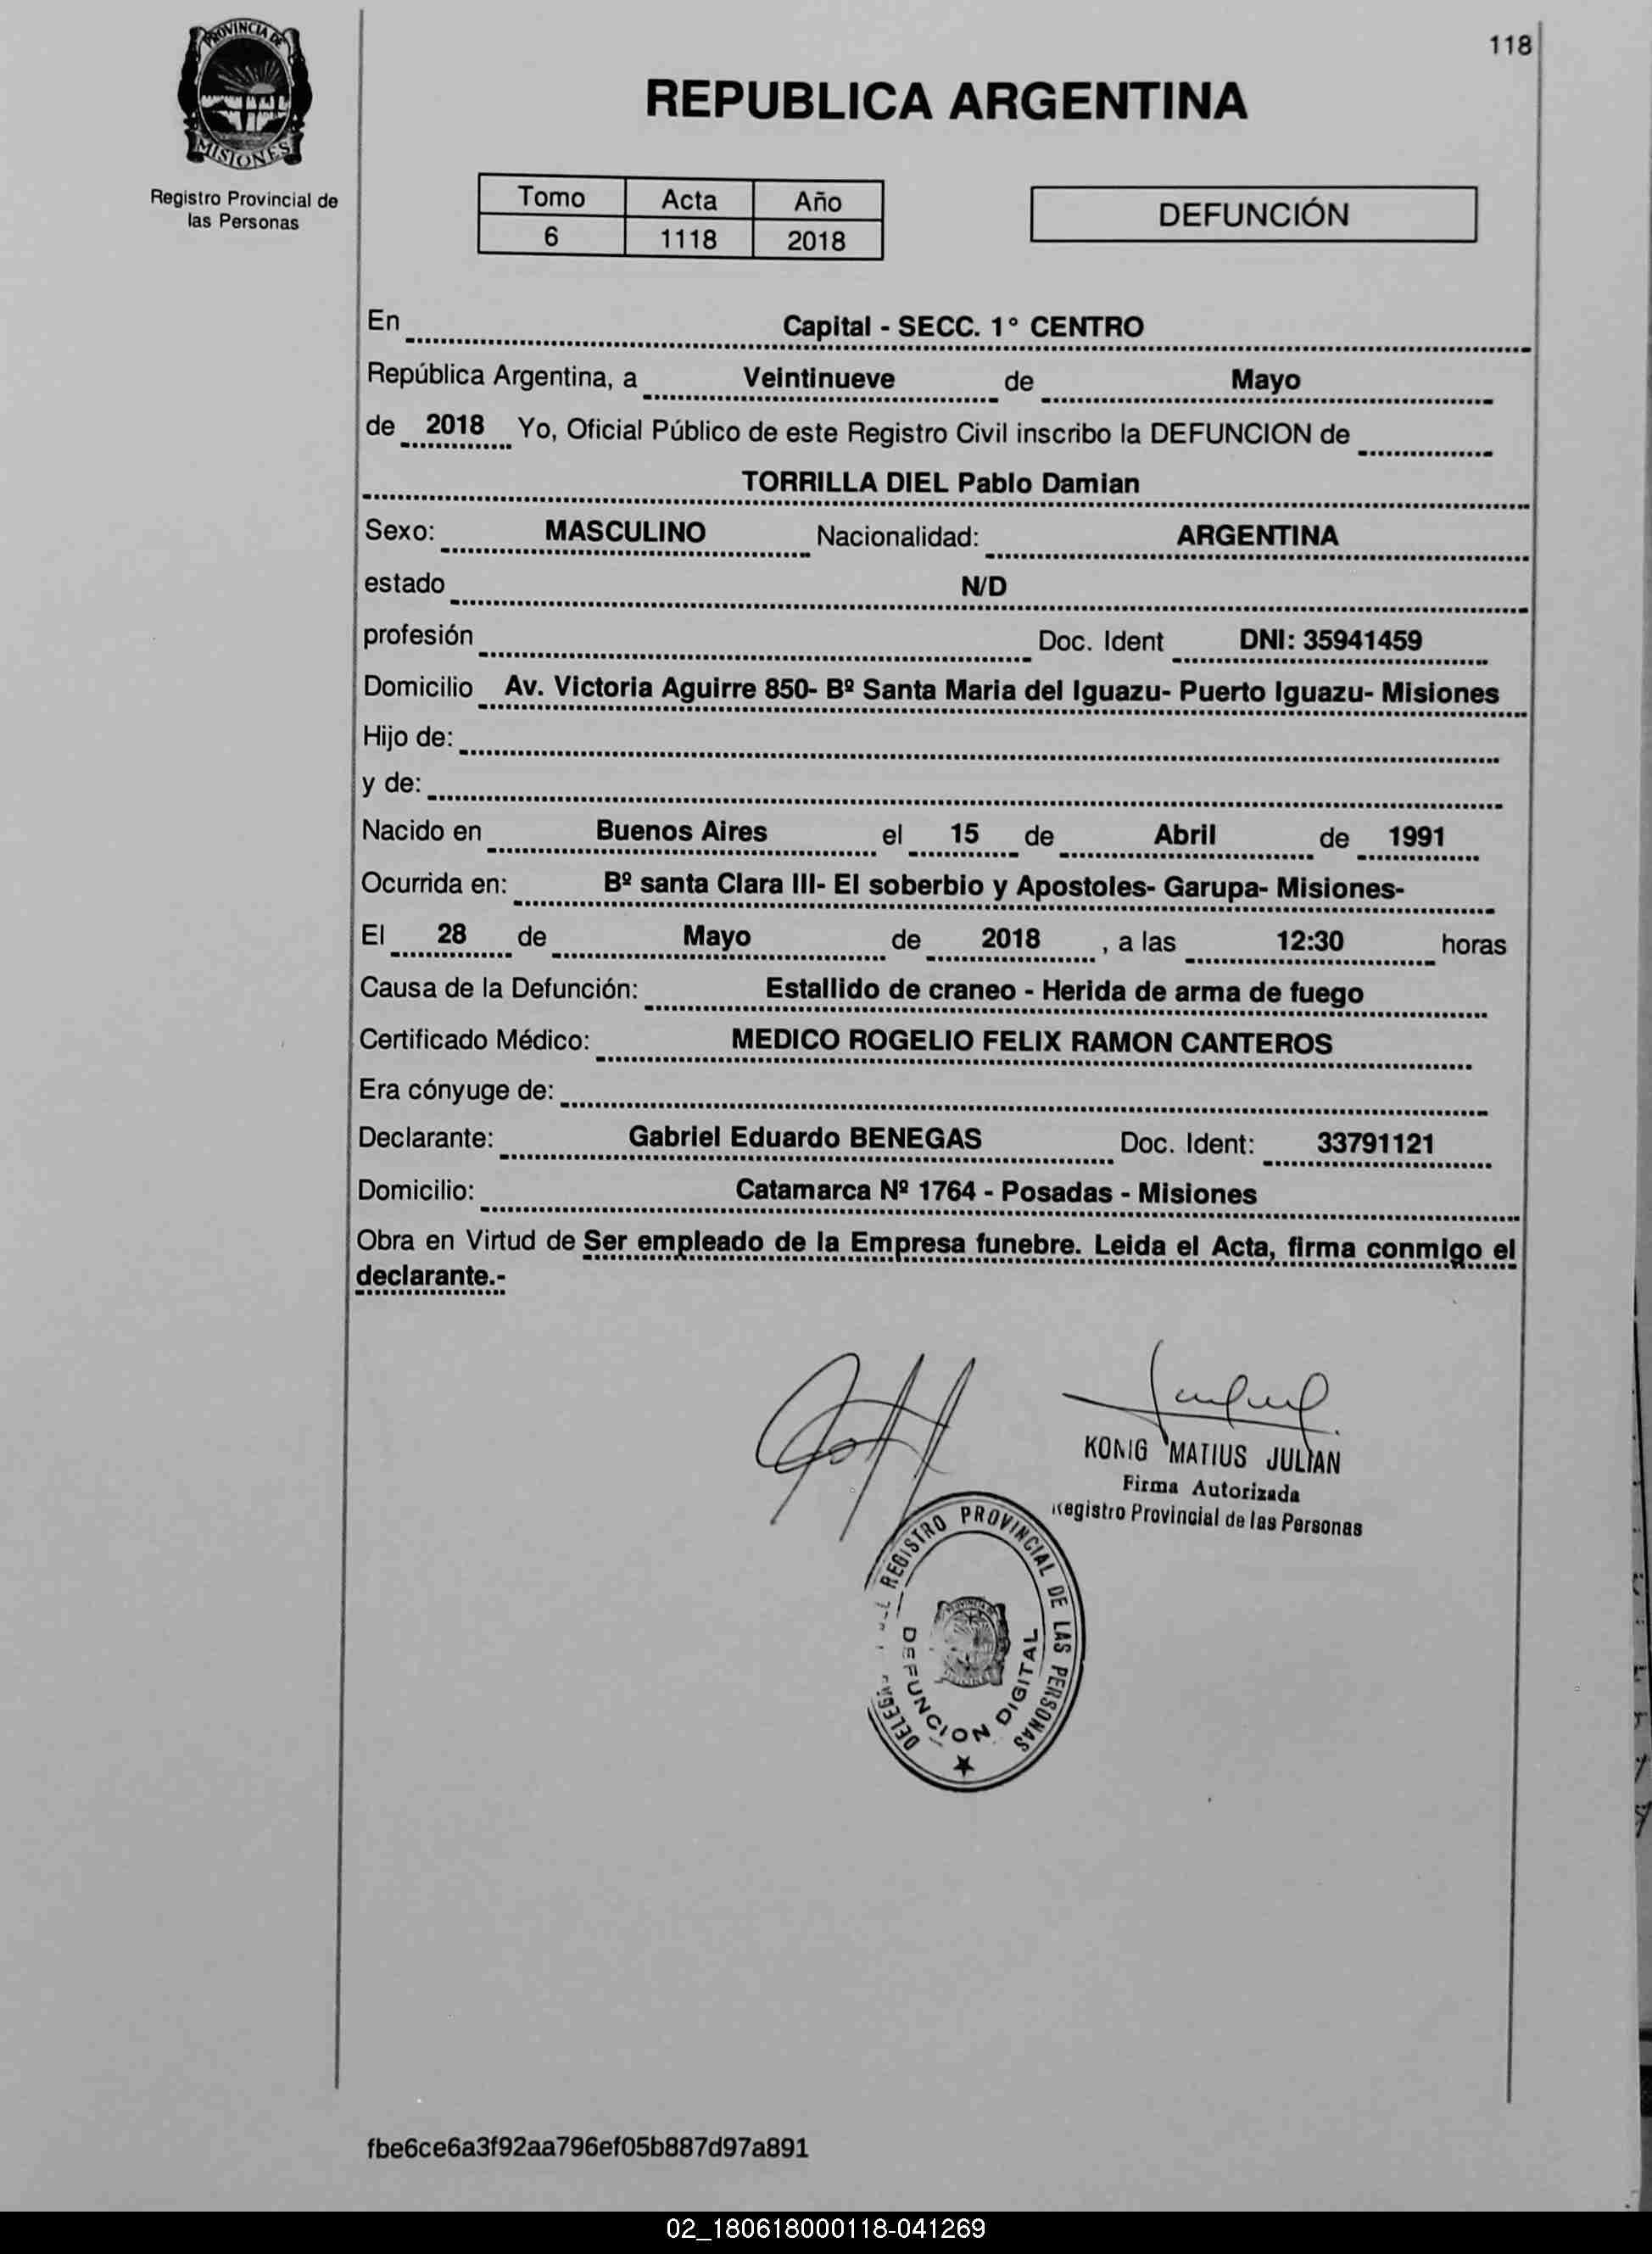 PROVINCIA DE
MISIONES
Registro Provincial de
las Personas
118
REPUBLICA ARGENTINA
Tomo Acta Año
6 1118 2018
DEFUNCIÓN
En Capital - SECC. 1° CENTRO
República Argentina, a Veintinueve de Mayo
de 2018 Yo, Oficial Público de este Registro Civil inscribo la DEFUNCION de
TORRILLA DIEL Pablo Damian
Sexo: MASCULINO Nacionalidad: ARGENTINA
estado N/D
profesión Doc. Ident DNI: 35941459
Domicilio Av. Victoria Aguirre 850- Bº Santa Maria del Iguazu- Puerto Iguazu- Misiones
Hijo de:
y de:
Nacido en Buenos Aires el 15 de Abril de 1991
Ocurrida en: Bº santa Clara III- El soberbio y Apostoles- Garupa- Misiones-
El 28 de Mayo de 2018 , a las 12:30 horas
Causa de la Defunción: Estallido de craneo - Herida de arma de fuego
Certificado Médico: MEDICO ROGELIO FELIX RAMON CANTEROS
Era cónyuge de:
Declarante: Gabriel Eduardo BENEGAS Doc. Ident: 33791121
Domicilio: Catamarca Nº 1764 - Posadas - Misiones
Obra en Virtud de Ser empleado de la Empresa funebre. Leida el Acta, firma conmigo el
declarante.-
KONIG MATIUS JULIAN
Firma Autorizada
Registro Provincial de las Personas
REGISTRO PROVINCIAL DE LAS PERSONAS
DEFUNCION DIGITAL
fbe6ce6a3f92aa796ef05b887d97a891
02_180618000118-041269